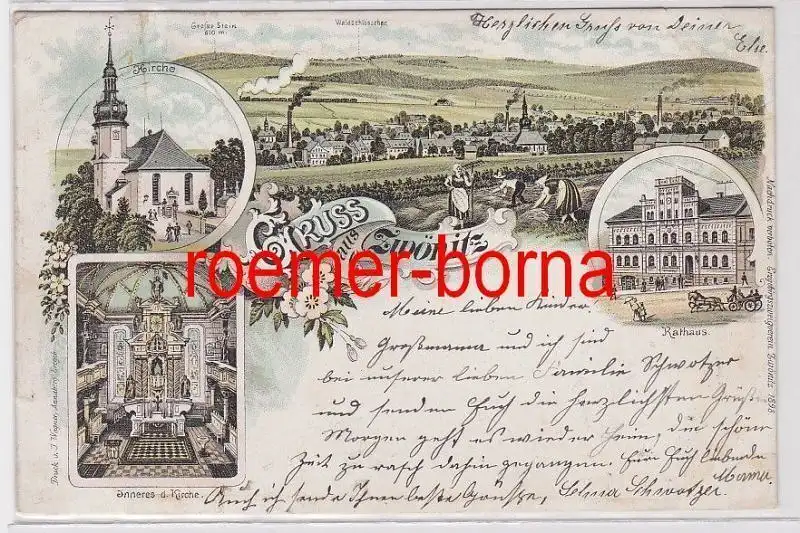 Grosser Stein
610 m.
Waldschlösschen
Herzlichen Gruss von Deiner
Kirche
GRUSS
aus
Zwönitz
roemer-borna
Rathaus.
Meine lieben Kinder.
Großmama und ich sind
bei unserer lieben Familie Schwotzer
und senden Euch die herzlichsten Grüße
Morgen geht es wieder heim, die schöne
Zeit zu rasch dahin gegangen. Eure Euch liebende
Mama
Auch ich sende Ihnen beste Grüsse, Selma Schwotzer.
Inneres d. Kirche.
Druck v. J. Wagner, Annaberg, Erzgeb.
Nachdruck verboten. Zwönitz 1898